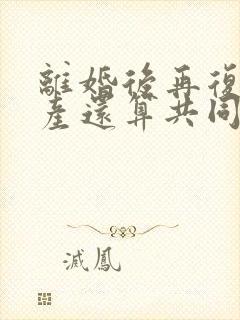 離婚後再復
産還算共同
滅鳳